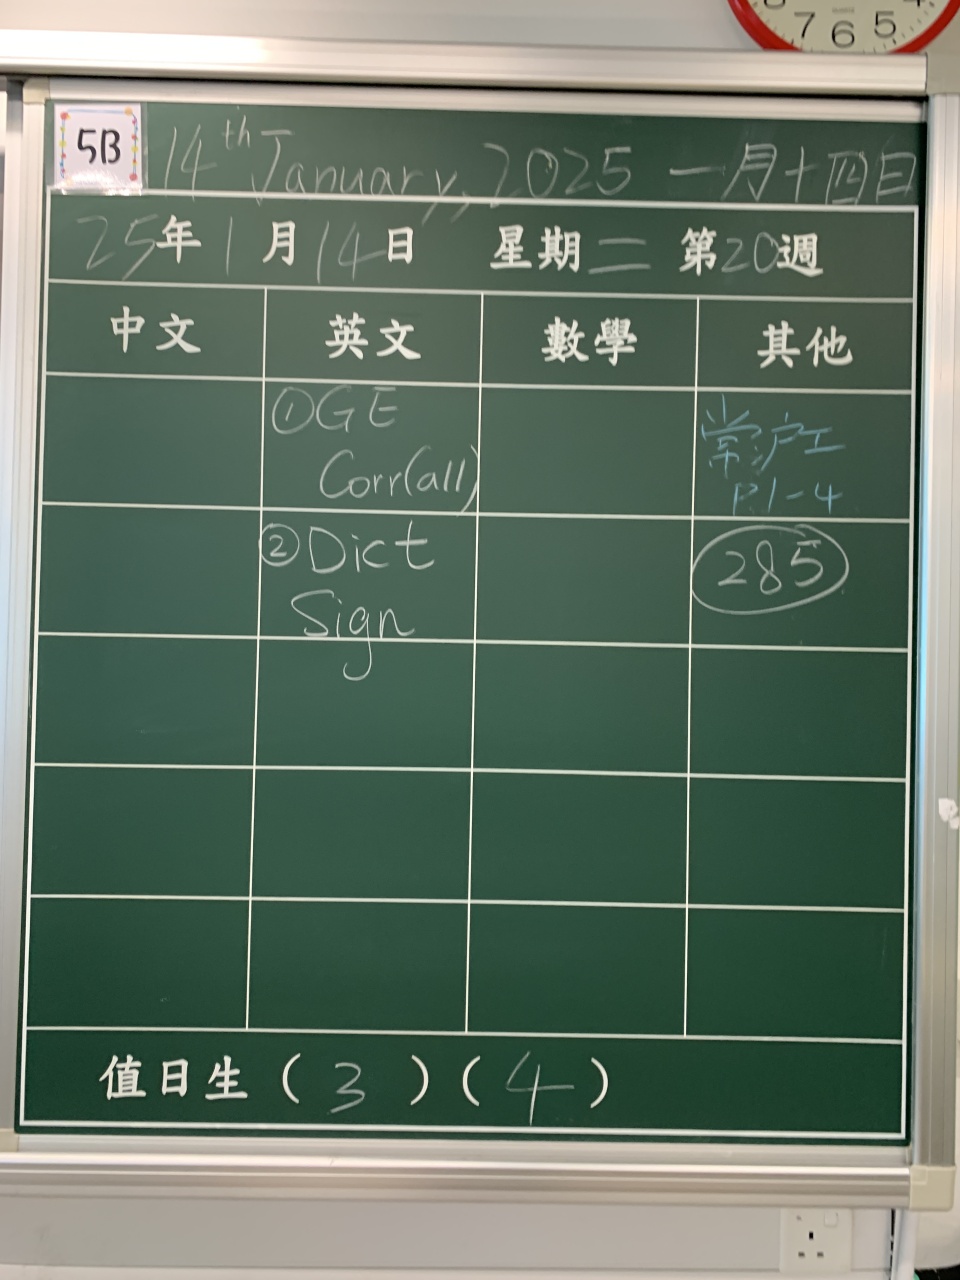 7 6 5
5B 14th January, 2025 一月十四日
25年1月14日 星期二 第20週
中文 英文 數學 其他
①GE
Corr(all)
常戶工
P.1-4
②Dict
Sign
285
值日生(3)(4)